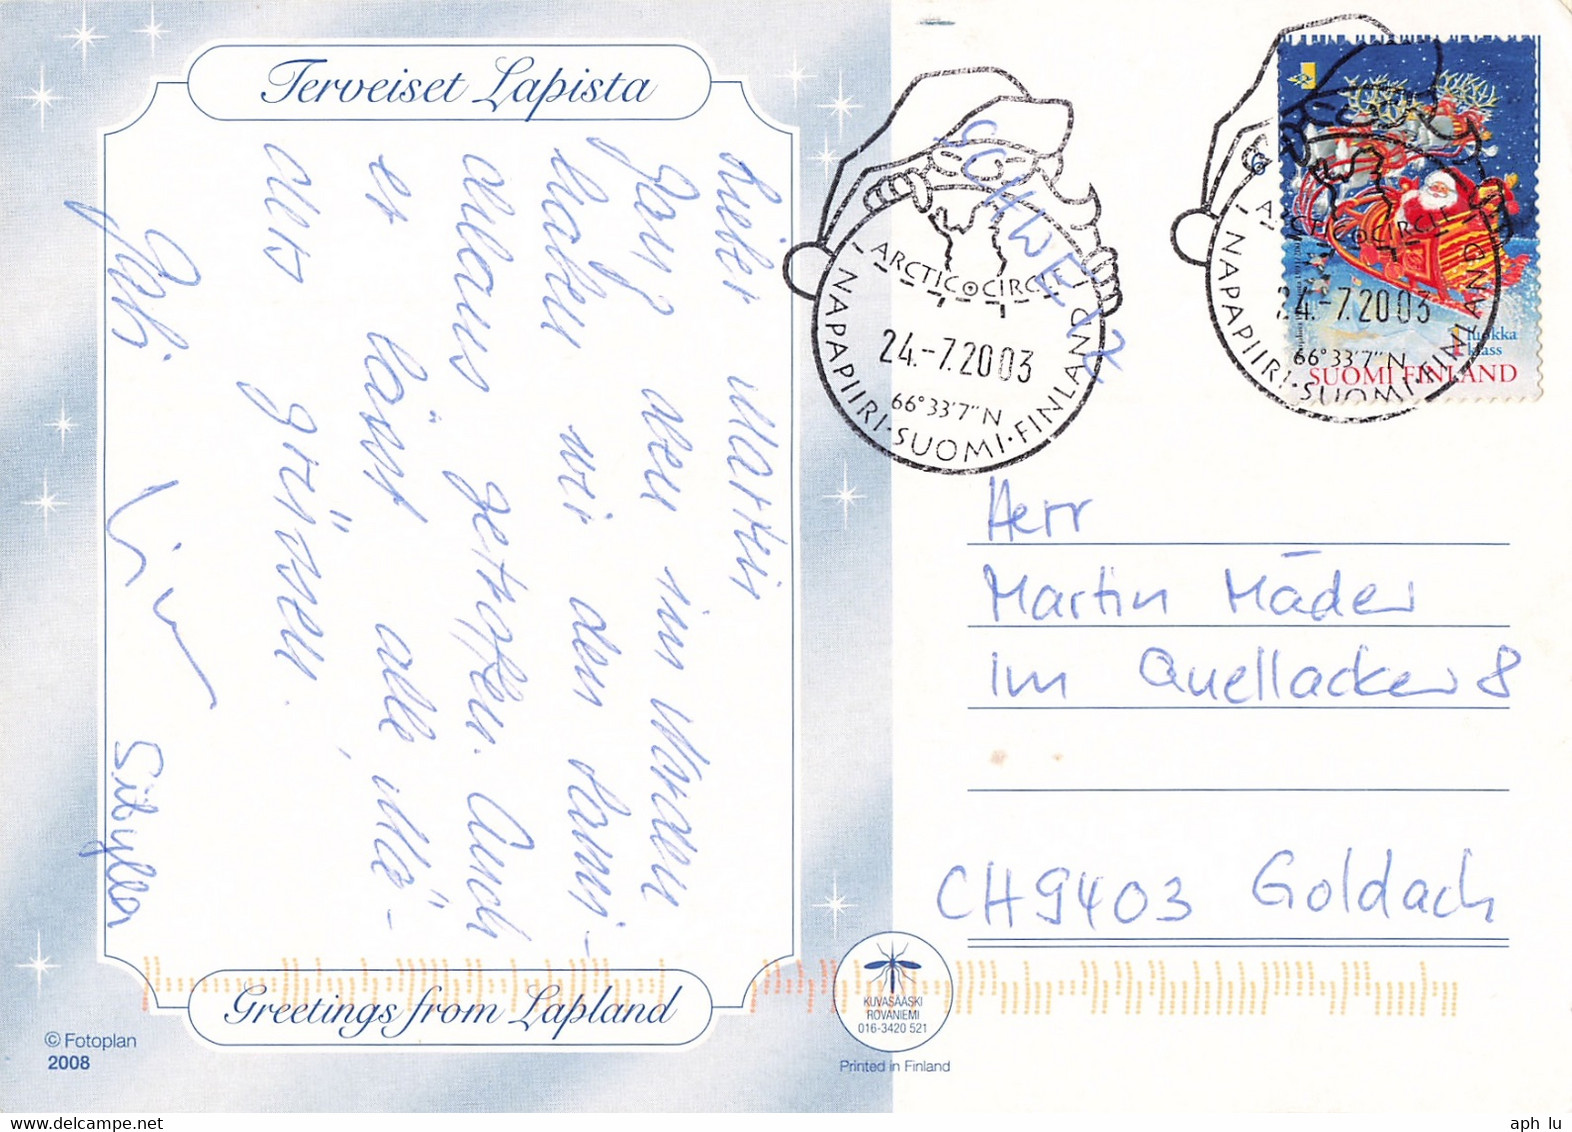 Terveiset Lapista
Lieber Martin
Ganz oben im Norden
haben wir den Sami-
klaus getroffen. Auch
er lässt alle, Mä-
ders grüssen.
Sibylle
Greetings from Lapland
© Fotoplan
2008
KUVASÄÄSKI
ROVANIEMI
016-3420 521
Printed in Finland
SCHWEIZ
ARCTIC CIRCLE
24.-7.2003
66°33'7"N
NAPAPIIRI·SUOMI·FINLAND
ARCTIC CIRCLE
24.-7.2003
66°33'7"N
NAPAPIIRI·SUOMI·FINLAND
1 luokka
klass
SUOMI FINLAND
Herr
Martin Mäder
im Quellacker 8
CH9403 Goldach
aph_lu